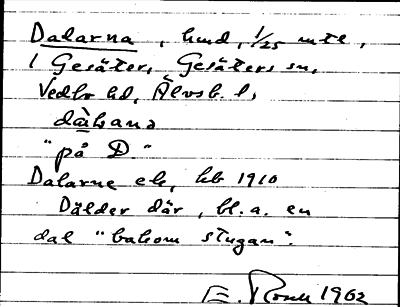 Dalarna, hmd, 1/25 mtl,
1 Gesäter, Gesäters sn,
Vedbo hd, Älvsb. l,
dàɫɐna
"på D."
Dalarne ek, kb 1910
Dälder där, bl.a. en
dal "bakom stugan".
E. 1962